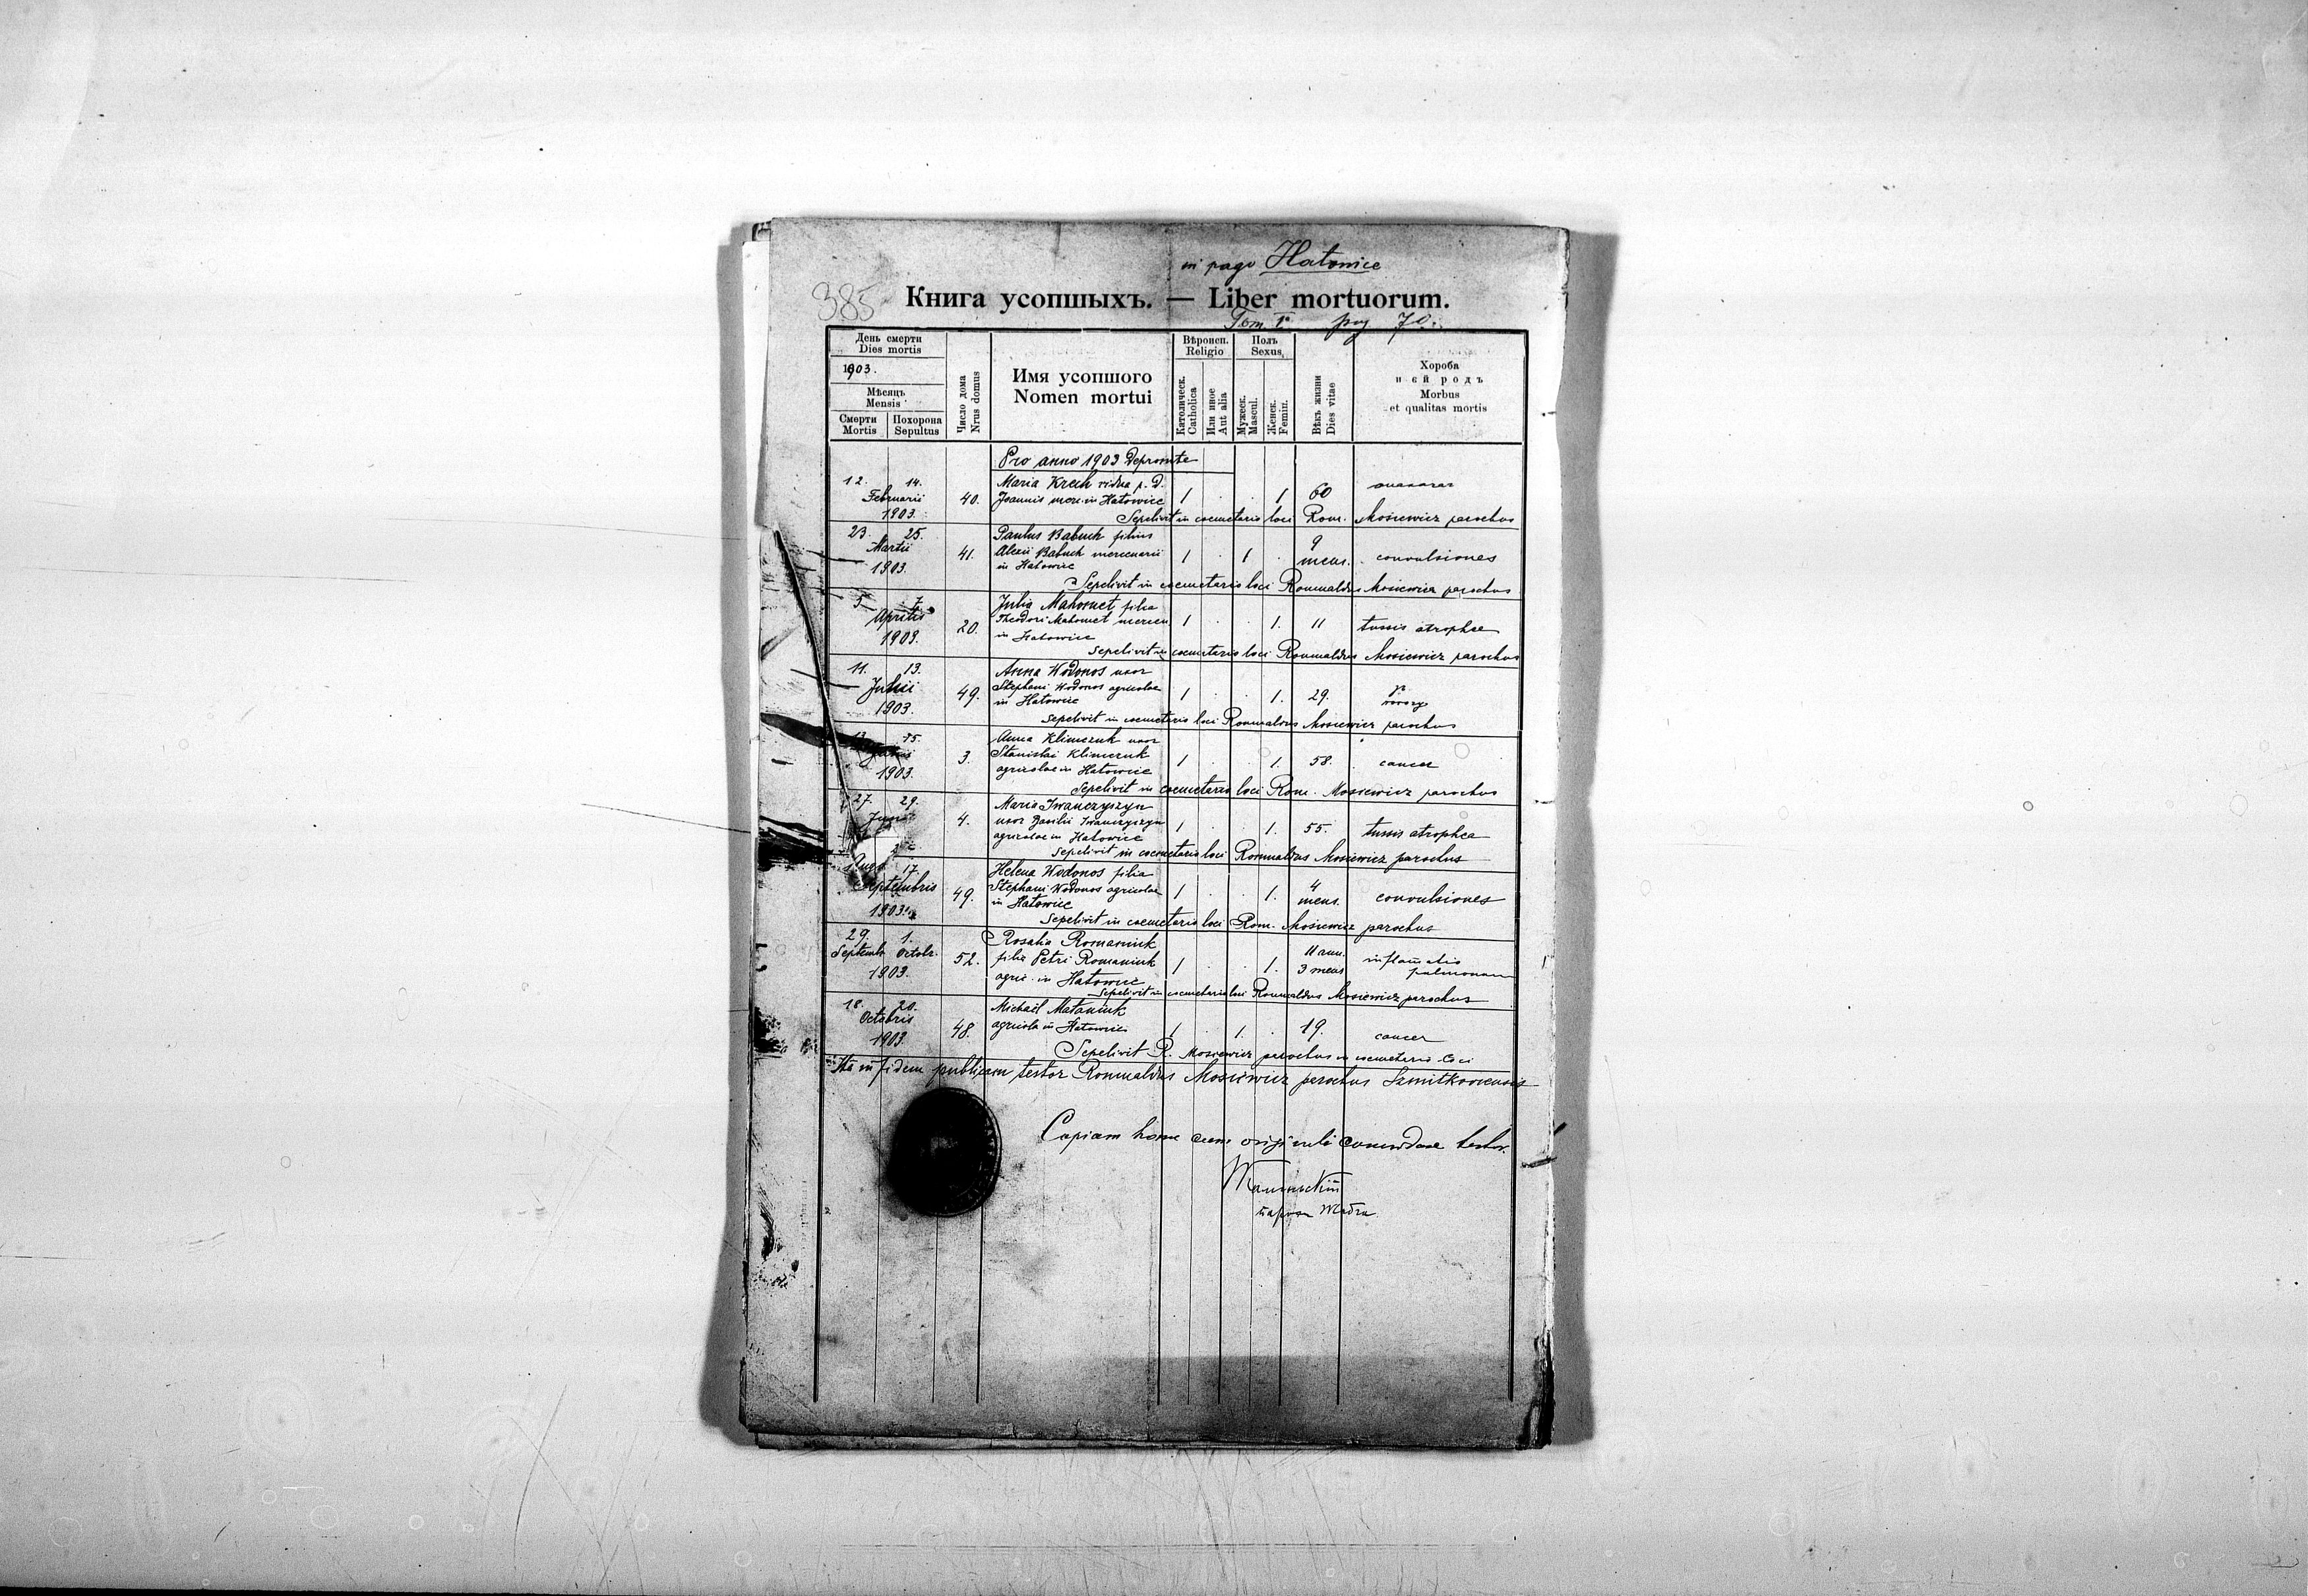 in pago Hatowice
385
Книга усопшыхъ. — Liber mortuorum.
Tom I pag 70.
День смерти
Dies mortis
1903.
Мѣсяцъ
Mensis
Смерти
Mortis
Похорона
Sepultus
Число дома
Nrus domus
Имя усопшого
Nomen mortui
Вѣроисп.
Religio
Католическ.
Catholica
Или иное
Aut alia
Полъ
Sexus
Мужеск.
Mascul.
Женск.
Femin.
Вѣкъ жизни
Dies vitae
Хороба
и єй родъ
Morbus
et qualitas mortis
Pro anno 1903
12. 14. Maria Kreh vidua p. d.
Februarii 40. Joannis merc. in Hatowice 1 . . 1 60
1903. Sepelivit in coemeterio loci Rom. Mosiewicz parochus
23. 25. Paulus Babuch filius 9
Martii 41. Alexii Babuch mercenarii 1 . 1 . mens. convulsiones
1903. in Hatowice
Sepelivit in coemeterio loci Romualdus Mosiewicz parochus
5. 7. Julia Mahomet filia
Aprilis 20. Theodori Mahomet mercen 1 . . 1. 11 tussis atrophea
1903. in Hatowice
Sepelivit in coemeterio loci Romualdus Mosiewicz parochus
11. 13. Anna Wodonos uxor
Julii 49. Stephani Wodonos agricolae 1 . . 1. 29.
1903. in Hatowice
Sepelivit in coemeterio loci Romualdus Mosiewicz parochus
13. 15. Anna Klimczuk uxor
3. Stanislai Klimczuk 1 . . 1. 58. cancer
1903. agricolae in Hatowice
Sepelivit in coemeterio loci Rom. Mosiewicz parochus
27. 29. Maria Iwanczyszyn
4. uxor Basilii Iwanczyszyn 1 . . 1. 55. tussis atrophea
agricolae in Hatowice
Sepelivit in coemeterio loci Romualdus Mosiewicz parochus
17. Helena Wodonos filia
Septembris 49. Stephani Wodonos agricolae 1 . . 1. 4 mens. convulsiones
1903. in Hatowice
Sepelivit in coemeterio loci Rom. Mosiewicz parochus
29. 1. Rosalia Romaniuk 11 ann.
Septemb Octobr. 52. filia Petri Romaniuk 1 . . 1. 3 mens inflamatio
1903. agric. in Hatowice pulmonum
Sepelivit in coemeterio loci Romualdus Mosiewicz parochus
18. 20. Michael Mataniuk
Octobris 48. agricola in Hatowice 1 . 1. . 19. cancer
1903. Sepelivit R. Mosiewicz parochus in coemeterio loci
Ita in fidem publicam testor Romualdus Mosiewicz parochus Szmitkoviensis
Copiam hanc cum originali concordare testor.